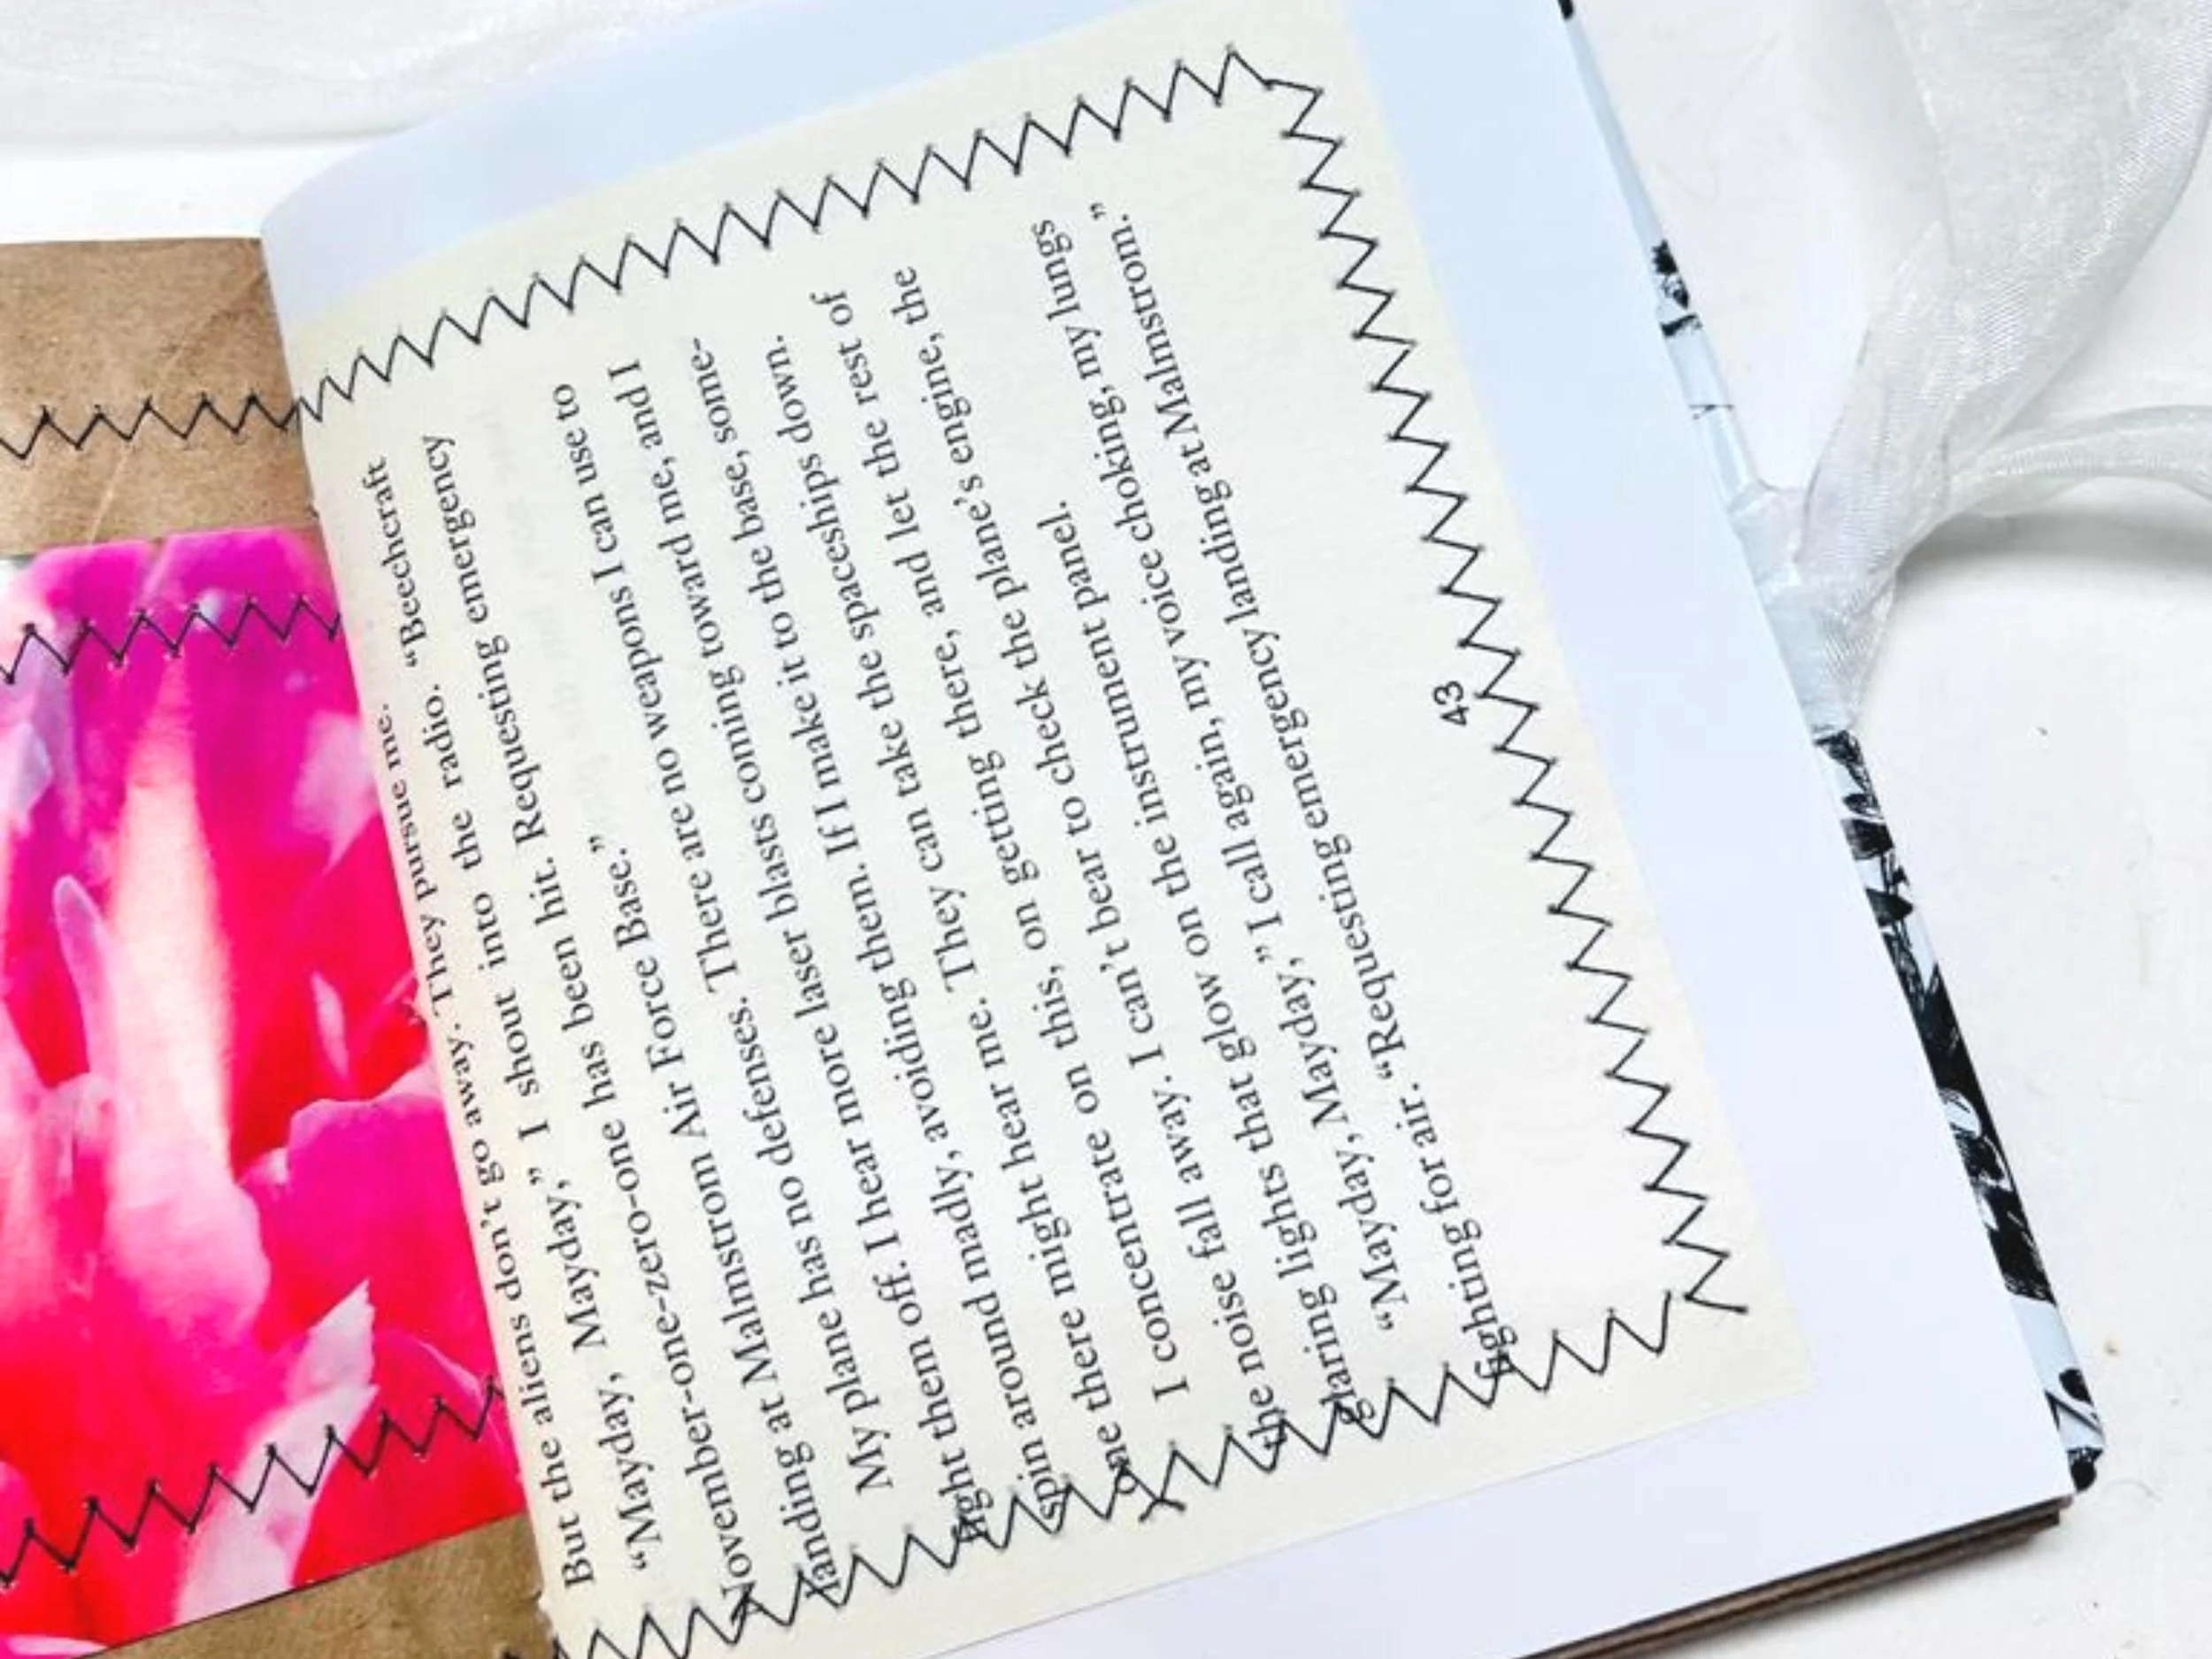 But the aliens don't go away. They pursue me.
“Mayday, Mayday,” I shout into the radio. “Beechcraft
November-one-zero-one has been hit. Requesting emergency
landing at Malmstrom Air Force Base.”
My plane has no defenses. There are no weapons I can use to
fight them off. I hear more laser blasts coming toward me, and I
spin around madly, avoiding them. If I make it to the base, some-
one there might hear me. They can take the spaceships down.
I concentrate on this, on getting there, and let the rest of
the noise fall away. I can't bear to check the plane's engine, the
glaring lights that glow on the instrument panel.
“Mayday, Mayday,” I call again, my voice choking, my lungs
fighting for air. “Requesting emergency landing at Malmstrom.”
43